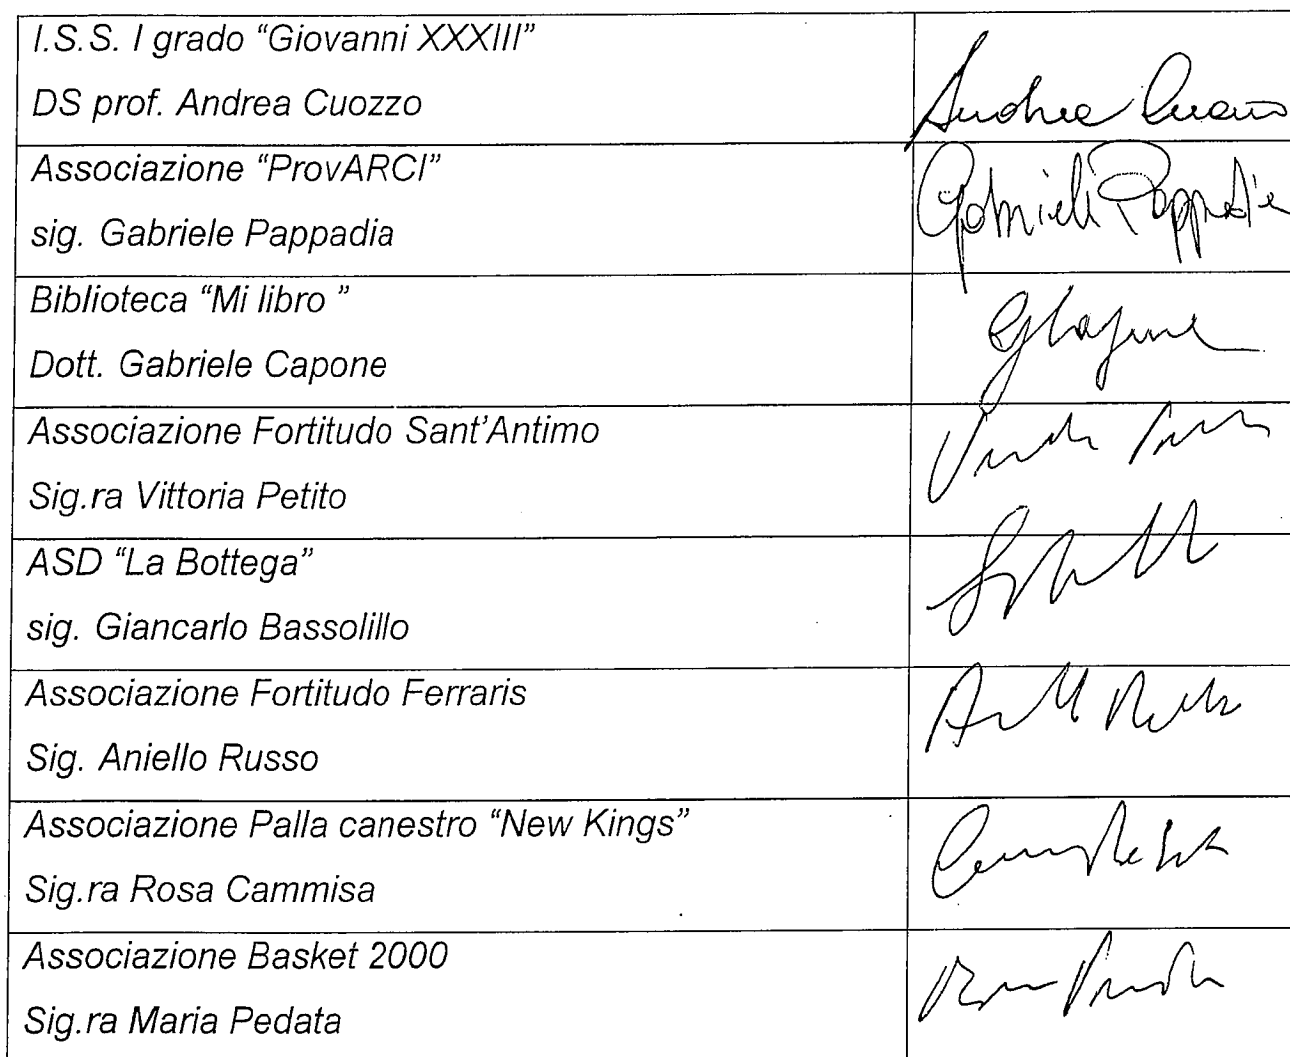 I.S.S. I grado “Giovanni XXXIII”
DS prof. Andrea Cuozzo
Andrea Cuozzo
Associazione “ProvARCI”
sig. Gabriele Pappadia
Gabriele Pappadia
Biblioteca “Mi libro ”
Dott. Gabriele Capone
Associazione Fortitudo Sant’Antimo
Sig.ra Vittoria Petito
ASD “La Bottega”
sig. Giancarlo Bassolillo
Associazione Fortitudo Ferraris
Sig. Aniello Russo
Associazione Palla canestro “New Kings”
Sig.ra Rosa Cammisa
Associazione Basket 2000
Sig.ra Maria Pedata